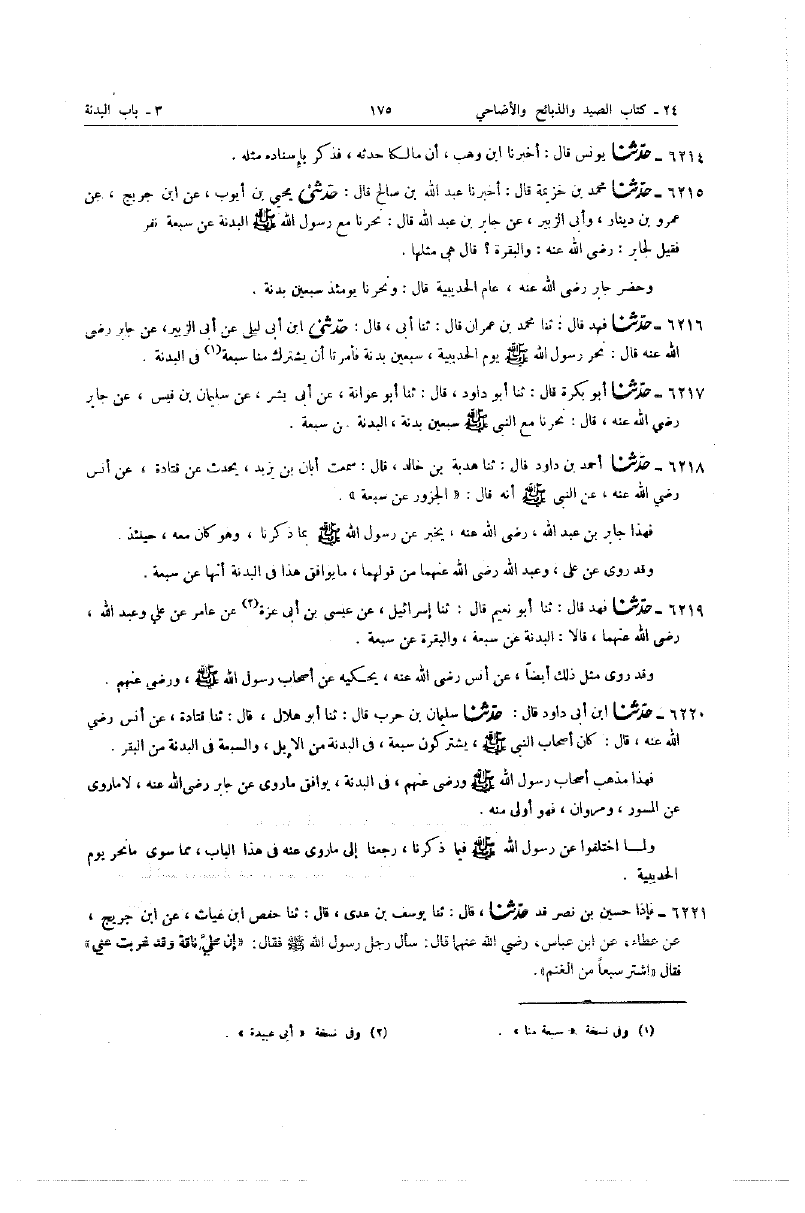 ٢٤ ـ كتاب الصيد والذبائح والأضاحي ١٧٥ ٣ ـ باب البدنة
٦٢١٤ ـ حدثنا يونس قال : أخبرنا ابن وهب ، أن مالكا حدثه ، فذكر بإسناده مثله .
٦٢١٥ ـ حدثنا محمد بن خزيمة قال : أخبرنا عبد الله بن صالح قال : حدثنى يحيي بن أيوب ، عن ابن جريج ، عن
عمرو بن دينار ، وأبى الزبير ، عن جابر بن عبد الله قال : نحرنا مع رسول الله ﷺ البدنة عن سبعة نفر
فقيل لجابر : رضى الله عنه : والبقرة ؟ قال هى مثلها .
وحضر جابر رضى الله عنه ، عام الحديبية قال : ونحرنا يومئذ سبعين بدنة .
٦٢١٦ ـ حدثنا فهد قال : ثنا محمد بن عمران قال : ثنا أبى ، قال : حدثنى ابن أبى ليلى عن أبى الزبير، عن جابر رضى
الله عنه قال : نحر رسول الله ﷺ يوم الحديبية ، سبعين بدنة فأمرنا أن يشترك منا سبعة(١) فى البدنة .
٦٢١٧ ـ حدثنا أبو بكرة قال : ثنا أبو داود ، قال : ثنا أبو عوانة ، عن أبى بشر ، عن سليمان بن قيس ، عن جابر
رضي الله عنه ، قال : نحرنا مع النبى ﷺ سبعين بدنة ، البدنة عن سبعة .
٦٢١٨ ـ حدثنا أحمد بن داود قال : ثنا هدبة بن خالد ، قال : سمعت أبان بن يزيد ، يحدث عن قتادة ، عن أنس
رضي الله عنه ، عن النبى ﷺ أنه قال : « الجزور عن سبعة » .
فهذا جابر بن عبد الله ، رضى الله عنه ، يخبر عن رسول الله ﷺ بما ذكرنا ، وهو كان معه ، حينئذ .
وقد روى عن على ، وعبد الله رضى الله عنهما من قولهما ، مايوافق هذا فى البدنة أنها عن سبعة .
٦٢١٩ ـ حدثنا فهد قال : ثنا أبو نعيم قال : ثنا إسرائيل ، عن عيسى بن أبى عزة(٢) عن عامر عن علي وعبد الله ،
رضى الله عنهما ، قالا : البدنة عن سبعة ، والبقرة عن سبعة .
وقد روى مثل ذلك أيضاً ، عن أنس رضى الله عنه ، يحكيه عن أصحاب رسول الله ﷺ ، ورضي عنهم .
٦٢٢٠ ـ حدثنا ابن أبى داود قال : حدثنا سليمان بن حرب قال : ثنا أبو هلال ، قال : ثنا قتادة ، عن أنس رضي
الله عنه ، قال : كان أصحاب النبى ﷺ ، يشتركون سبعة ، فى البدنة من الإبل ، والسبعة فى البدنة من البقر .
فهذا مذهب أصحاب رسول الله ﷺ ورضى عنهم ، فى البدنة ، يوافق ماروى عن جابر رضى الله عنه ، لاماروى
عن المسور ، ومروان ، فهو أولى منه .
ولما اختلفوا عن رسول الله ﷺ فيما ذكرنا ، رجعنا إلى ماروى عنه فى هذا الباب ، مما سوى مانحر يوم
الحديبية .
٦٢٢١ ـ فإذا حسين بن نصر قد حدثنا ، قال : ثنا يوسف بن عدى ، قال : ثنا حفص ابن غياث ، عن ابن جريج ،
عن عطاء، عن ابن عباس، رضي الله عنهما قال: سأل رجل رسول الله ﷺ فقال: «إن عليَّ ناقة وقد غربت عني»
فقال «اشتر سبعاً من الغنم».
(١) وفى نسخة « سبعة منا » . (٢) وفى نسخة « أبى عبيدة » .